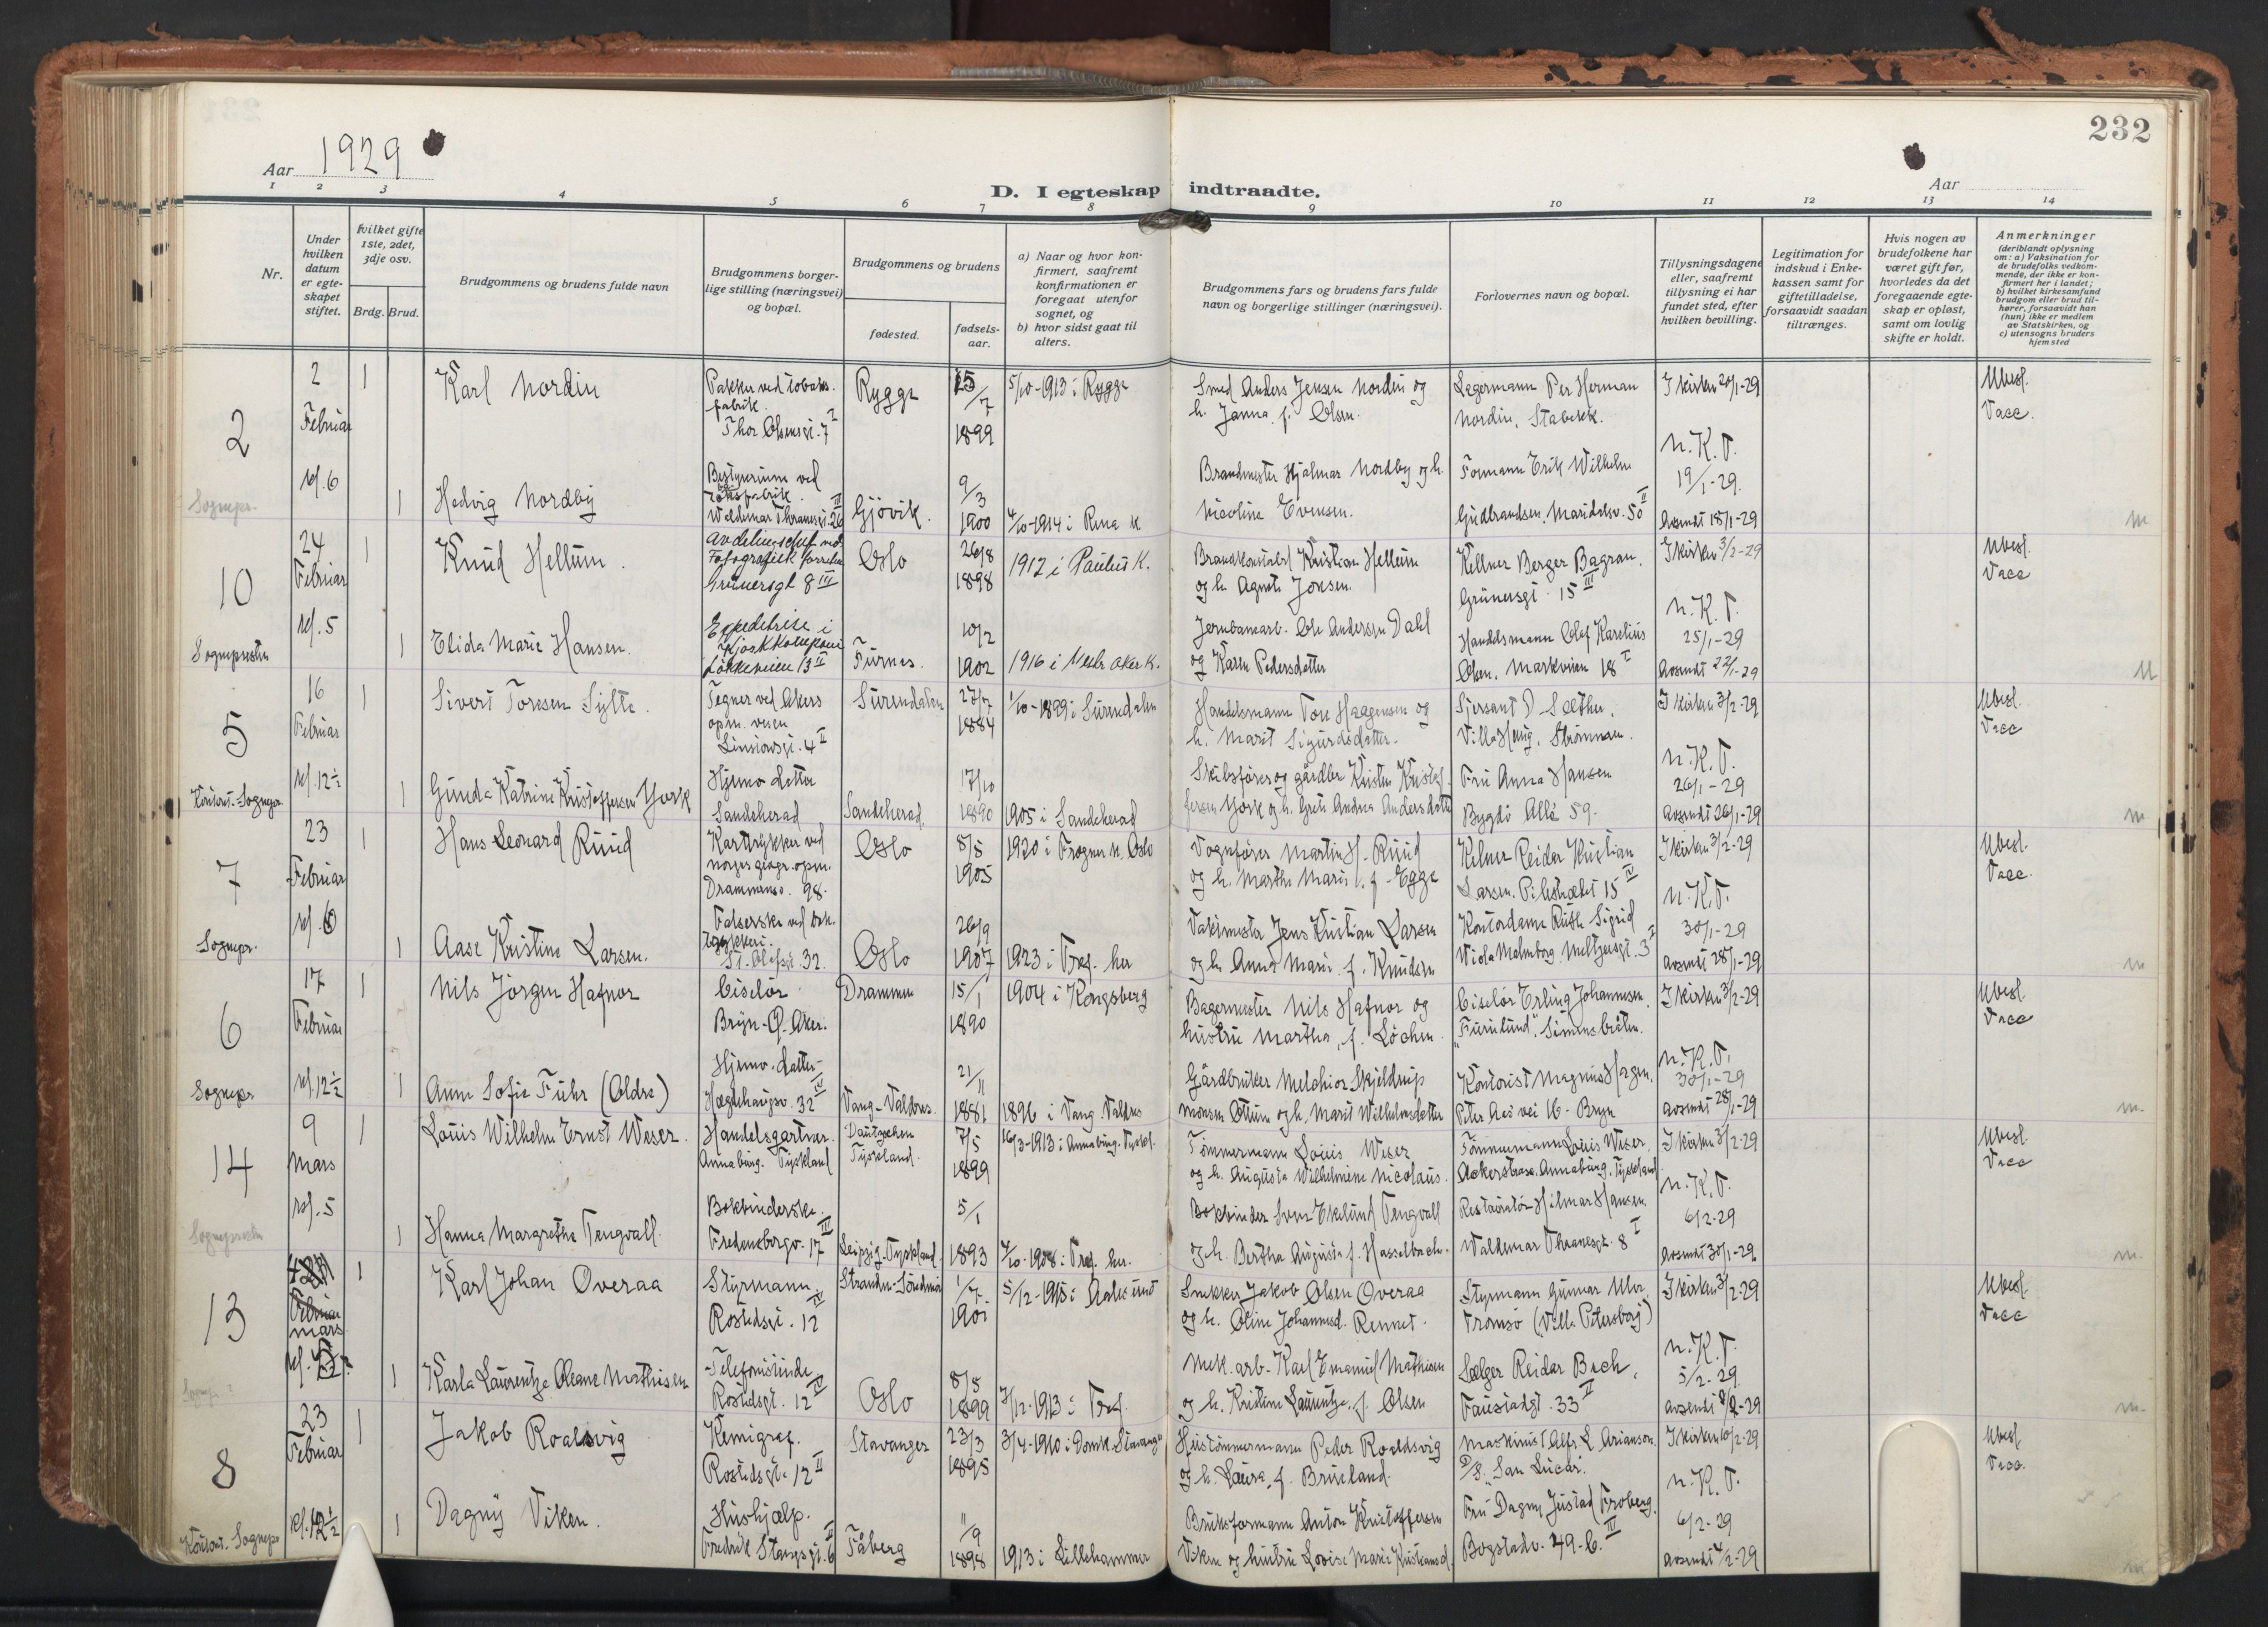 232
Aar 1929
Aar
D. I egteskap indtraadte.
1 2 3 4 5 6 7 8 9 10 11 12 13 14
Nr.
Under hvilken datum er egteskapet stiftet.
Hvilket gifte 1ste, 2det, 3dje osv.
Brdg. Brud.
Brudgommens og brudens fulde navn
Brudgommens borgerlige stilling (næringsvei) og bopæl.
Brudgommens og brudens
fødested.
fødselsaar.
a) Naar og hvor konfirmert, saafremt konfirmationen er foregaat utenfor sognet, og
b) hvor sidst gaat til alters.
Brudgommens fars og brudens fars fulde navn og borgerlige stillinger (næringsvei).
Forlovernes navn og bopæl.
Tillysningsdagene eller, saafremt tillysning ei har fundet sted, efter hvilken bevilling.
Legitimation for indskud i Enkekassen samt for giftetilladelse, forsaavidt saadan tiltrænges.
Hvis nogen av brudefolkene har været gift før, hvorledes da det foregaaende egteskap er opløst, samt om lovlig skifte er holdt.
Anmerkninger
(deriblandt oplysning om: a) Vaksination for de brudefolks vedkommende, der ikke er konfirmert her i landet; b) hvilket kirkesamfund brudgom eller brud tilhører, forsaavidt han (hun) ikke er medlem av Statskirken, og c) utensogns bruders hjemsted
2
2 Februar
kl. 6
Sognepr.
1 Karl Nordin
Pakker ved tobaksfabrik.
Thor Olsensgt. 7
Rygge
7
1899
5/10-1913 i Rygge
Smed Anders Jensen Nordin og
h. Janna f. Olsen.
Lagermann Per Herman
Nordin, Stabekk.
I kirken 20/1-29
N.K.T.
19/1-29.
Avsendt 18/1-29
Ubesl.
Vacc.
1 Hedvig Nordby
Bestyrerinne ved
Waldemar Thranesgt. 26 III
Gjövik.
9/3
1900
4/10-1914 i Rena K
Brandmester Hjalmar Nordby og h.
Nicoline Evensen.
Formann Erik Wilhelm
Gudbrandsen. Maridalsv. 50 II
10
24 Februar
kl. 5
Sognepresten
1 Knud Hellum.
Fotografisk forretn.
Grünersgt 8 III
Oslo
26/8
1898
1912 i Paulus K.
Brandkonstabel Kristian Hellum
og h. Agnete Jonsen.
Kellner Berger Bagran.
Grünersgt. 15 III
I kirken 3/2-29
N.K.T.
25/1-29
Avsendt 22/1-29
Ubesl.
Vacc
1 Elida Marie Hansen.
Expeditrise i
Kioskkompani
Lökkeveien 13 II
Furnes.
10/2
1902
1916 i Vestr Aker K.
Jernbanearb. Ole Andersen Dahl
og Karen Pedersdatter
Handelsmann Olaf Karelius
Olsen. Markveien 18 I
5
16 Februar
kl. 12½
Kontoret. Sognepr.
1 Sivert Toresen Sylte.
Tegner ved Akers
opm. vesen
4 II
Surendalen
27/7
1884
1/10-1899 i Surendalen
Handelsmann Tore Haagensen og
h. Marit Sigurdsdatter.
Sersant D Sæther.
Villa Heug, Strömmen.
I kirken 3/2-29
N.K.T.
26/1-29
Avsendt 26/1-29
Ubesl.
Vacc
1 Gunda Katrine Kristoffersen York
Hjemv. datter
Sandeherad
Sandeherad.
17/10
1890
1905 i Sandeherad
Skibsförer og gårdbr Kristen Kristoffersen York og h. Grete Andrea Andersdatter
Fru Anna Hansen
Bygdö Allé 59.
7
23 Februar
kl. 6
Sognepr.
1 Hans Leonard Ruud
Karttrykker ved
Norges geogr. opm.
Drammensv. 98.
Oslo
8/8
1905
1920 i Frogner m. Oslo
Vognförer Martin H. Ruud
og h. Marthe Marie f. Egge
Kelner Reidar Kristian
Larsen. Pilestrædet 15 IV
I kirken 3/2-29
N.K.T.
30/1-29
Avsendt 28/1-29
Ubesl.
Vacc.
1 Aase Kristine Larsen.
Falserske ved bok-
trykkeri.
St. Olafsgt. 32.
Oslo
26/9
1907
1923 i Tref. her
Vaktmester Jens Kristian Larsen
og h. Anna Marie f. Knudsen
Kontordame Ruth Sigrid
Viola Malmborg. Meltzersgt. 3 I
6
17 Februar
kl. 12½
Sognepr
1 Nils Jörgen Hafnor
Ciselör
Bryn. Ö. Aker.
Drammen
15/1
1890
1904 i Kongsberg
Bagermester Nils Hafnor og
hustru Martha, f. Löchen
Ciselör Erling Johannesen.
"Furulund". Simensbråten.
I kirken 3/2-29
N.K.T.
30/1-29
Avsendt 28/1-29
Ubesl.
Vacc
1 Anne Sofie Fuhr (Oldre)
Hjemv. datter
Hægdehaugsv. 32 IV
Vang-Valdres.
21/11
1881
1896 i Vang. Valdres
Gårdbruker Melchior Skjeldrup
Monsen Ottum og h. Marit Wilhelmsdatter
Kontorist Magnus Hagen.
Peter Aas vei 16. Bryn
14
9 Mars
kl. 5
Sognepresten
1 Louis Wilhelm Ernst Weser.
Handelsgartner.
Annaburg. Tyskland
Dautzschen
Tyskland.
7/5
1899
16/3-1913 i Annaburg. Tyskl.
Tömmermann Louis Weser
og h. Augusta Wilhelmine Nicolaus.
Tömmermann Louis Weser.
Ackerstrasse. Annaburg. Tyskland
I kirken 3/2-29
N.K.T.
6/2-29
Avsendt 30/1-29
Ubesl.
Vacc
1 Hanna Margretha Tengvall.
Bokbinderske.
Fredensborgv. 17 IV
Leipzig-Tyskland
5/1
1893
4/10-1908 i Tref. her.
Bokbinder Sven Ekelund Tengvall
og h. Bertha Augusta f. Hasselbach.
Restauratör Hilmar Hansen.
Waldemar Thranesgt. 8 I
13
Februar
mars
1 Karl Johan Overaa
Styrmann
Rostedsgt. 12 IV
Stranden-Söndmör
1/7
1901
5/12-1915 i Aalesund
Snekker Jakob Olsen Overaa
og h. Oline Johannesd. Rennet.
Styrmann Gunnar Moe
Tromsö (Villa Petersborg)
I kirken 3/2-29
N.K.T.
5/2-29.
Avsendt 8/2-29
Ubesl.
Vacc
1 Karla Laurentze Oleane Mathisen
Telefonistinde
Rostedsgt. 12 IV
Oslo
8/5
1899
7/12-1913 i Tref.
Mek. arb. Karl Emanuel Mathisen
og h. Kristine Laurentze, f. Olsen
Sælger Reidar Bech,
Fauchaldsgt. 33 II
8
23 Februar
kl. 12½
Kontoret. Sognepr
1 Jakob Roaldsvig
Kemigraf.
Rostedsgt. 12 II
Stavanger
23/3
1895
3/4-1910 i Domk. Stavanger
Hustömmermann Peder Roaldsvig
og h. Laura, f. Brueland.
Maskinist Alfr. L Arianson.
D/S. "San Lucar."
I kirken 10/2-29
N.K.T.
6/2-29
Avsendt 4/2-29
Ubesl
Vacc.
1 Dagny Viken.
Hushjælp.
Fredrik Stangsgt. 6 II
Fåberg
11/9
1898
1913 i Lillehammer
Bruksformann Anton Kristoffersen
Viken og hustru Lovise Marie Kristiansd.
Fru Dagny Justad Froberg.
Bogstadv. 49-b. III